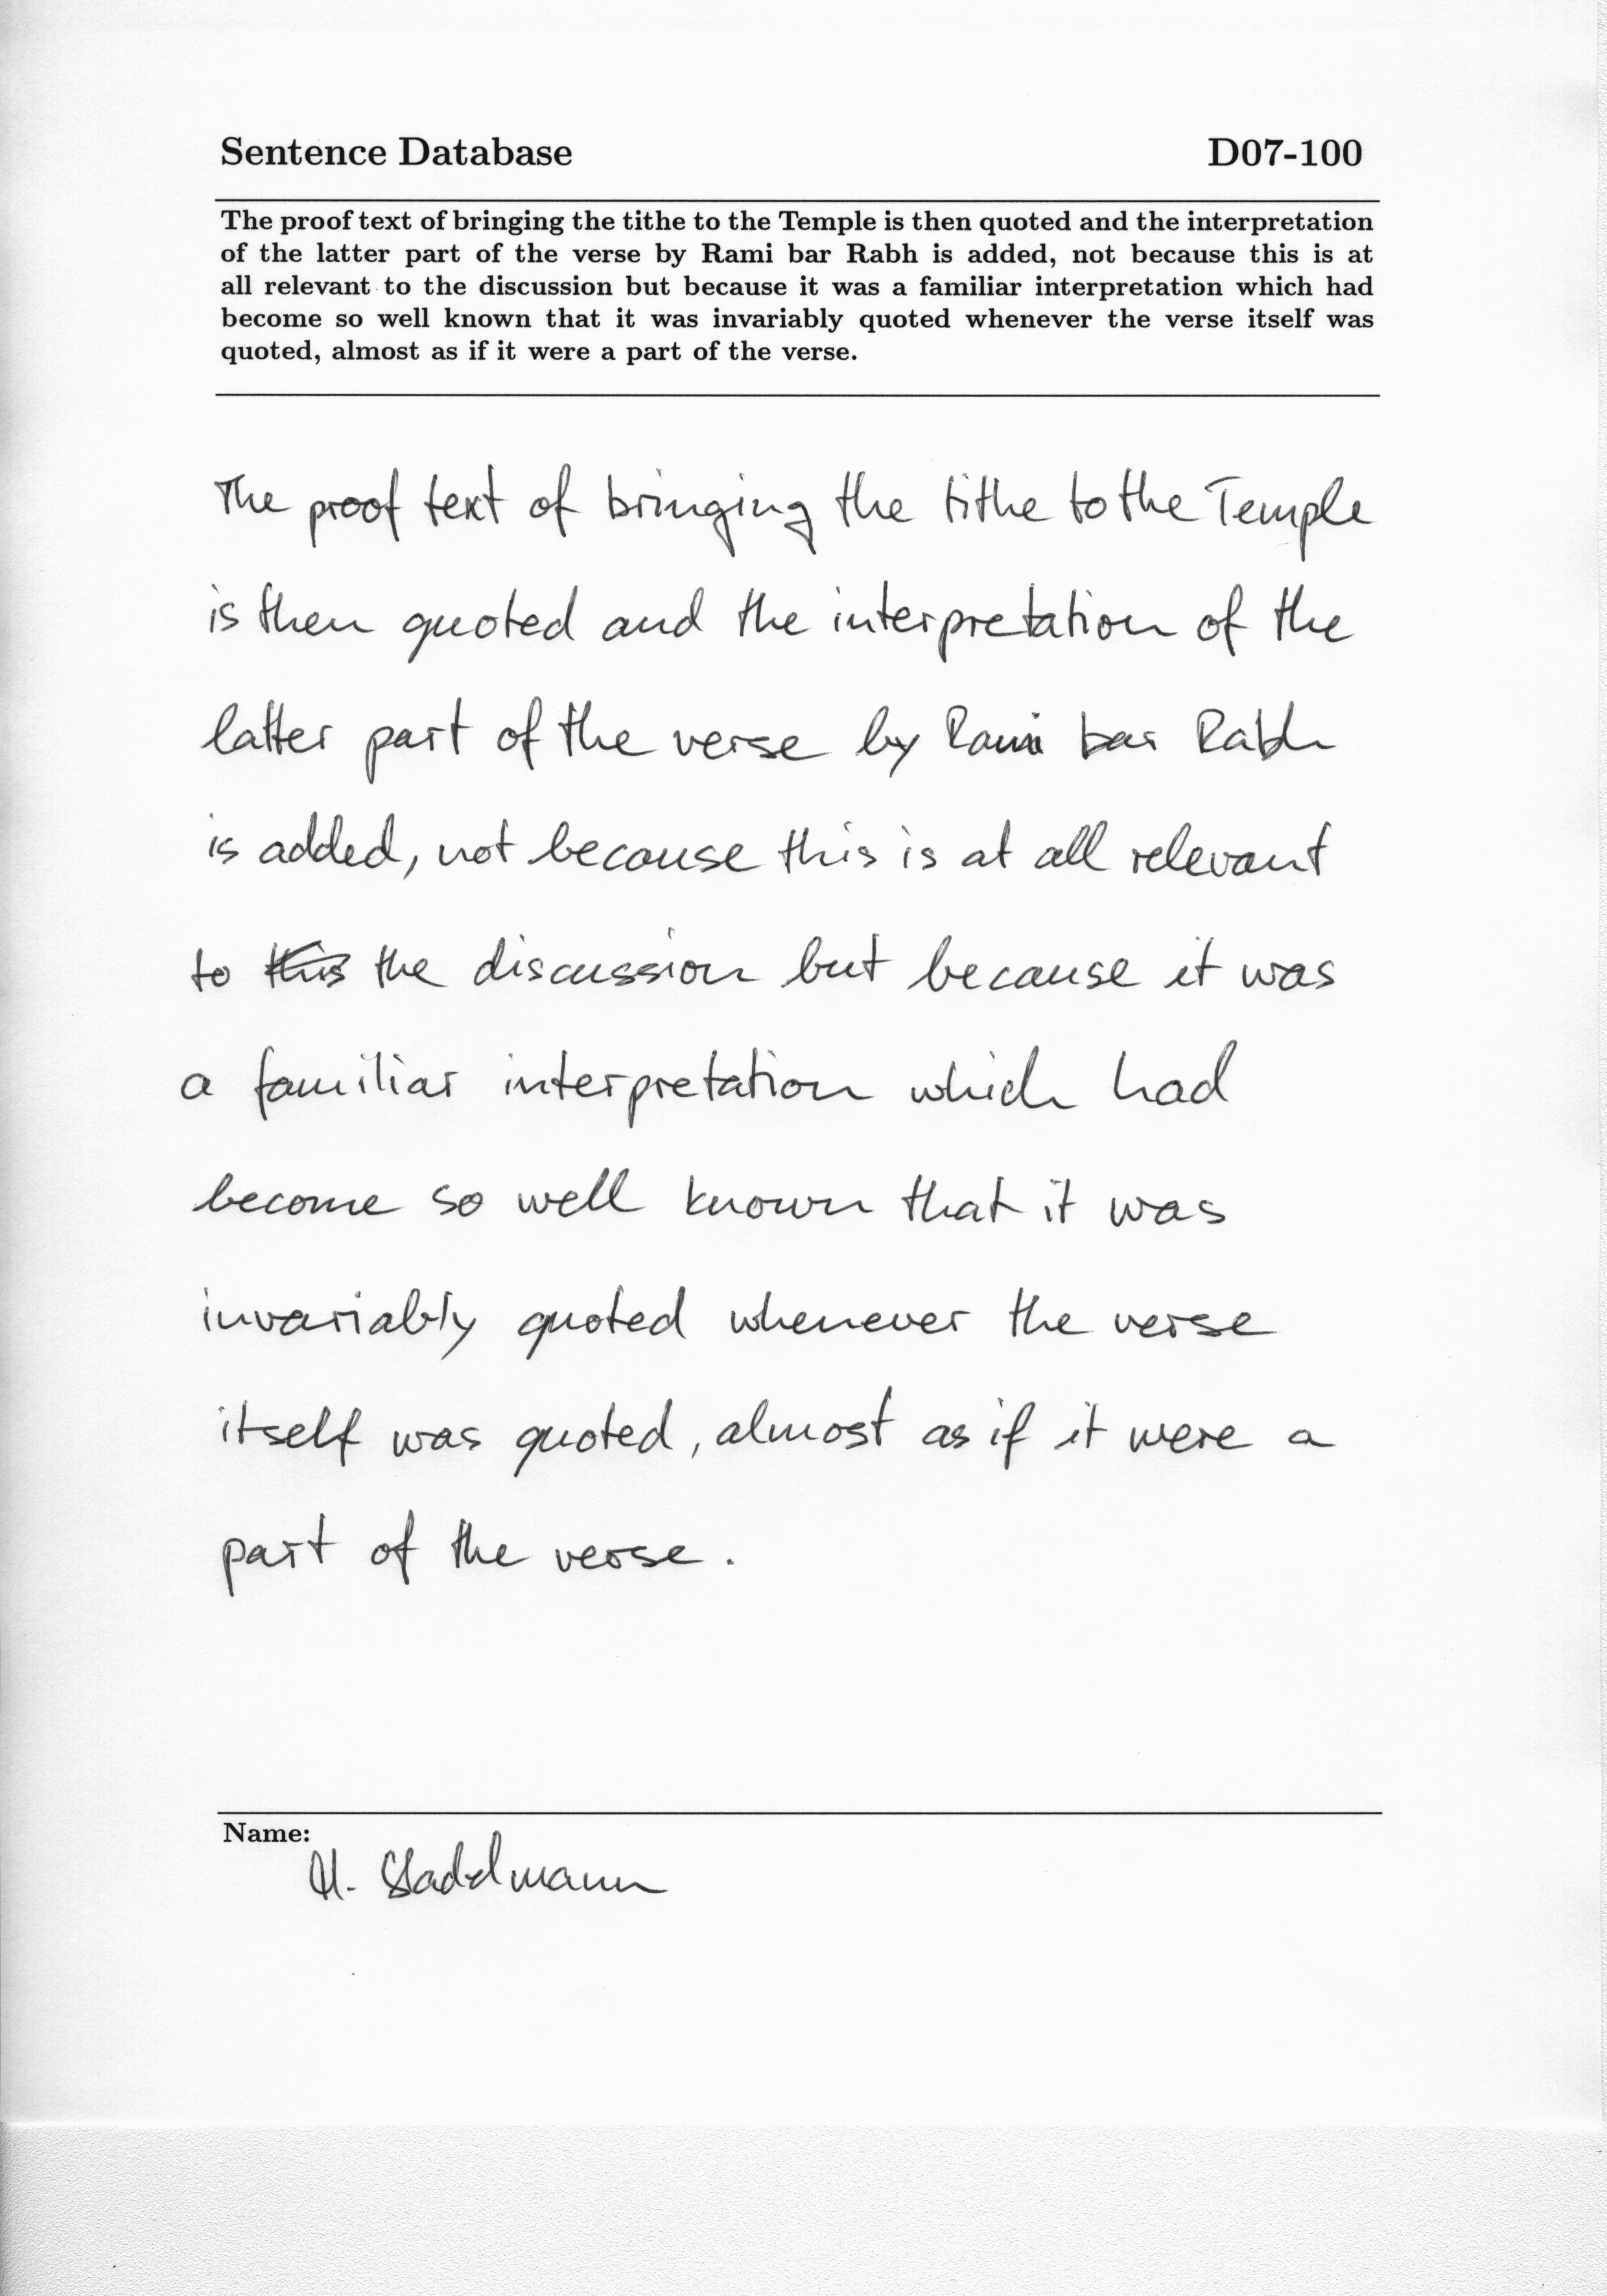 Sentence Database D07-100
The proof text of bringing the tithe to the Temple is then quoted and the interpretation
of the latter part of the verse by Rami bar Rabh is added, not because this is at
all relevant to the discussion but because it was a familiar interpretation which had
become so well known that it was invariably quoted whenever the verse itself was
quoted, almost as if it were a part of the verse.
The proof text of bringing the tithe to the Temple
is then quoted and the interpretation of the
latter part of the verse by Rami bar Rabh
is added, not because this is at all relevant
to this the discussion but because it was
a familiar interpretation which had
become so well known that it was
invariably quoted whenever the verse
itself was quoted, almost as if it were a
part of the verse.
Name:
H. Stadelmann